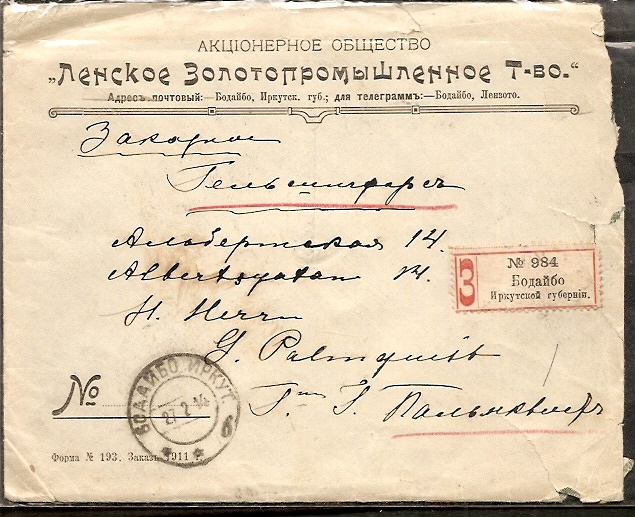 АКЦІОНЕРНОЕ ОБЩЕСТВО
„Ленское Золотопромышленное Т-во.“
Адресъ почтовый:—Бодайбо, Иркутск. губ.; для телеграммъ:—Бодайбо, Лензото.
Заказное
Гельсингфорсъ
Альбертская 14.
Albertsgatan 14.
H. Herrn
G. Palmquist
Гну Г. Пальмквистъ
З
№ 984
Бодайбо
Иркутской губерніи.
№
БОДАЙБО ИРКУТ.
27 2 14
б
Форма № 193. Заказъ 1911 г.